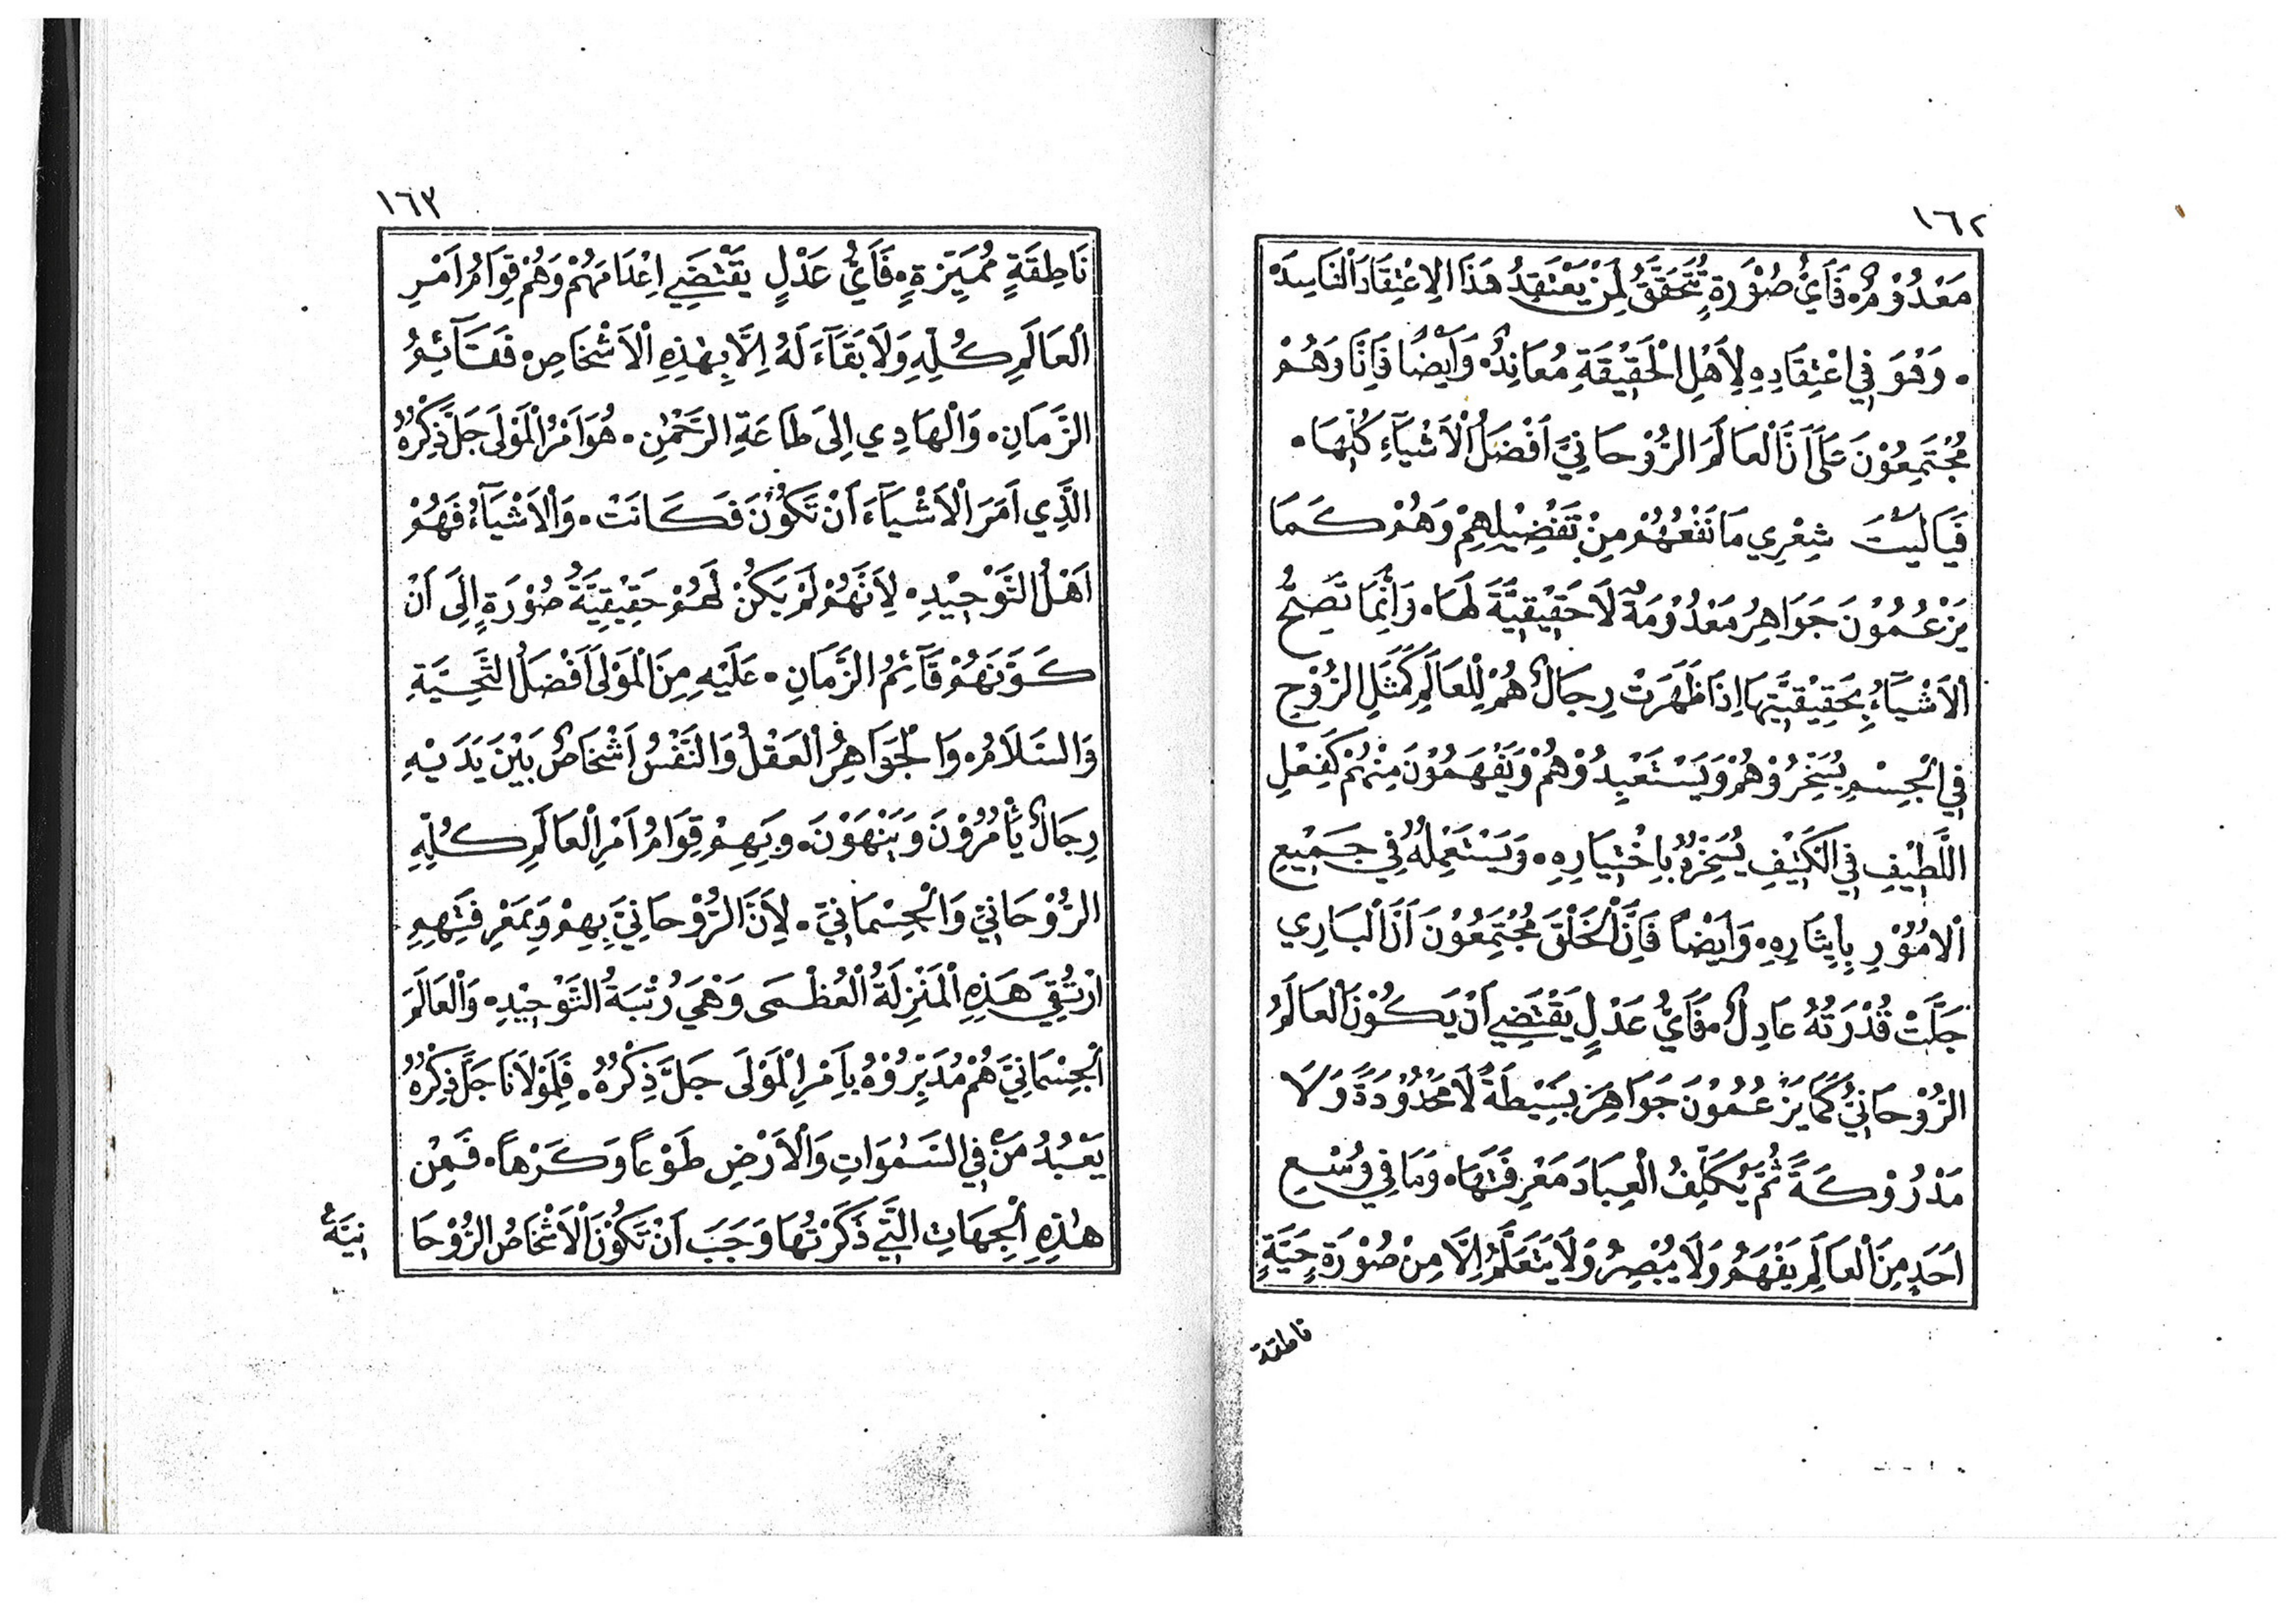 ١٦٢
مَعْدُوْمٌ. فَأَيُّ صُوْرَةٍ تُتَحَقَّقُ لِمَنْ يَعْتَقِدُ هَذَا الاِعْتِقَادَ الْفَاسِدَ
. وَهُوَ فِي اعْتِقَادِهِ لِأَهْلِ الْحَقِيْقَةِ مُعَانِدٌ. وَأَيْضًا فَإِنَّا وَهُمْ
مُجْتَمِعُوْنَ عَلَى أَنَّ الْعَالَمَ الرُّوْحَانِيَّ أَفْضَلُ الْأَشْيَآءِ كُلِّهَا.
فَيَا لَيْتَ شِعْرِي مَا نَفْعُهُمْ مِنْ تَفْضِيْلِهِمْ وَهُمْ كَمَا
يَزْعُمُوْنَ جَوَاهِرُ مَعْدُوْمَةٌ لَا حَقِيْقِيَّةَ لَهَا. وَإِنَّمَا تَصِحُّ
الْأَشْيَآءُ بِحَقِيْقِيَّتِهَا إِذَا ظَهَرَتْ رِجَالٌ هُمْ لِلْعَالَمِ كَمَثَلِ الرُّوْحِ
فِي الْجِسْمِ يُسَخِّرُوْهُمْ وَيَسْتَعْبِدُوْهُمْ وَيَفْهَمُوْنَ مِنْهُمْ كَفِعْلِ
اللَّطِيْفِ فِي الْكَثِيْفِ يُسَخِّرُهُ بِاخْتِيَارِهِ. وَيَسْتَعْمِلُهُ فِي جَمِيْعِ
الْأُمُوْرِ بِإِيثَارِهِ. وَأَيْضاً فَإِنَّ الْخَلْقَ مُجْتَمِعُوْنَ أَنَّ الْبَارِي
جَلَّتْ قُدْرَتُهُ عَادِلٌ فَأَيُّ عَدْلٍ يَقْتَضِي أَنْ يَكُوْنَ الْعَالَمُ
الرُّوْحَانِيُّ كَمَا يَزْعُمُوْنَ جَوَاهِرَ بَسِيْطَةً لَا مَحْدُوْدَةً وَلَا
مَدْرُوْكَةً ثُمَّ يُكَلِّفُ الْعِبَادَ مَعْرِفَتَهَا. وَمَا فِي وُسْعِ
أَحَدٍ مِنَ الْعَالَمِ يَفْهَمُ وَلَا يُبْصِرُ وَلَا يَتَعَلَّمُ إِلَّا مِنْ صُوْرَةٍ حَيَّةٍ
ناطقة
١٦٣
نَاطِقَةٍ مُمَيِّزَةٍ. فَأَيُّ عَدْلٍ يَقْتَضِي اِعْدَامَهُمْ وَهُمْ قِوَامُ اَمْرِ
الْعَالَمِ كُلِّهِ وَلَا بَقَآءَ لَهُ اِلَّا بِهٰذِهِ الْاَشْخَاصِ. فَقَآئِمُ
الزَّمَانِ. وَالْهَادِي اِلَى طَاعَةِ الرَّحْمٰنِ. هُوَ اَمْرُ الْمَوْلَى جَلَّ ذِكْرُهُ
الَّذِي اَمَرَ الْاَشْيَآءَ اَنْ تَكُوْنَ فَكَانَتْ. وَالْاَشْيَآءُ فَهُمْ
اَهْلُ التَّوْحِيْدِ. لِاَنَّهُمْ لَمْ يَكُنْ لَهُمْ حَقِيْقِيَّةُ صُوْرَةٍ اِلَى اَنْ
كَوَّنَهُمْ قَآئِمُ الزَّمَانِ. عَلَيْهِ مِنَ الْمَوْلَى اَفْضَلُ التَّحِيَّةِ
وَالسَّلَامُ. وَالْجَوَاهِرُ الْعَقْلُ وَالنَّفْسُ اَشْخَاصٌ بَيْنَ يَدَيْهِ
رِجَالٌ يَأْمُرُوْنَ وَيَنْهَوْنَ. وَبِهِمْ قِوَامُ اَمْرِ الْعَالَمِ كُلِّهِ
الرُّوْحَانِيِّ وَالْجِسْمَانِيِّ. لِاَنَّ الرُّوْحَانِيَّ بِهِمْ وَبِمَعْرِفَتِهِمِ
ارْتُقِيَ هَذِهِ الْمَنْزِلَةُ الْعُظْمَى وَهْيَ رُتْبَةُ التَّوْحِيْدِ. وَالْعَالَمَ
الْجِسْمَانِيَّ هُمْ مُدَبِّرُوْهُ بِاَمْرِ الْمَوْلَى جَلَّ ذِكْرُهُ. فَلِمَوْلَانَا جَلَّ ذِكْرُهُ
يَعْبُدُ مَنْ فِي السَّمٰوَاتِ وَالْاَرْضِ طَوْعاً وَكَرْهاً. فَمِنْ
هٰذِهِ الْجِهَاتِ الَّتِي ذَكَرْتُهَا وَجَبَ اَنْ تَكُوْنَ الْاَشْخَاصُ الرُّوْحَا
نِيَّةُ